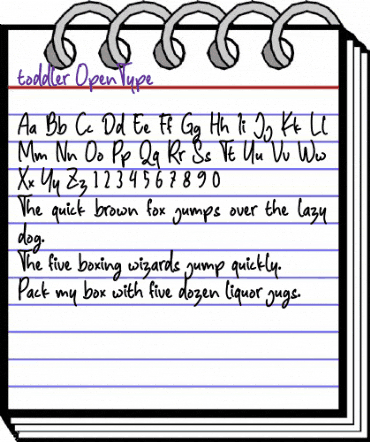 toddler OpenType
Aa Bb Cc Dd Ee Ff Gg Hh Ii Jj Kk Ll
Mm Nn Oo Pp Qq Rr Ss Tt Uu Vv Ww
Xx Yy Zz 1 2 3 4 5 6 7 8 9 0
The quick brown fox jumps over the lazy
dog.
The five boxing wizards jump quickly.
Pack my box with five dozen liquor jugs.